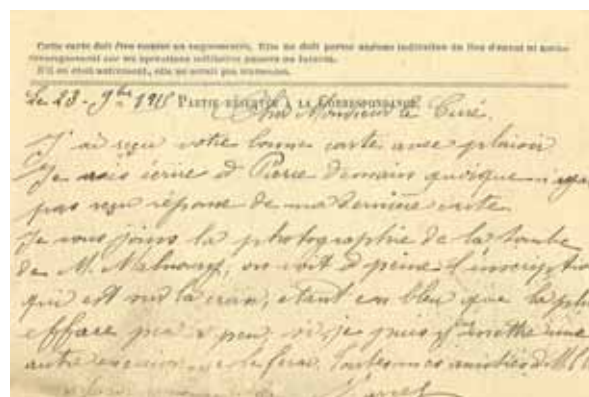 Cette carte doit être remise au vaguemestre. Elle ne doit porter aucune indication du lieu d'envoi ni aucun
renseignement sur les opérations militaires passées ou futures.
S'il en était autrement, elle ne serait pas transmise.
Le 23 - 9bre 1915 PARTIE RÉSERVÉE A LA CORRESPONDANCE.
Cher Monsieur le Curé,
J'ai reçu votre bonne carte avec plaisir
Je vais écrire à Pierre demain quoique n'aya
pas reçu réponse de ma dernière carte
Je vous joins la photographie de la tombe
de M. on voit à peine l'inscriptio
qui est sur la croix, étant en bleu que la plu
efface peu à peu, si je puis y mettre une
autre je le ferai. Toutes mes amitiés à M